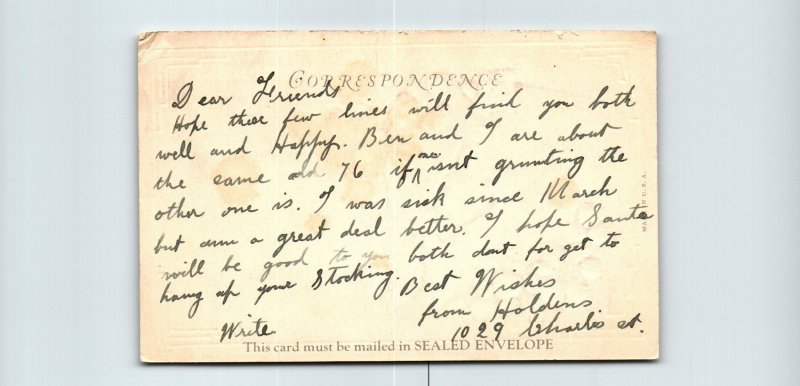 CORRESPONDENCE
Dear Friends
Hope these few lines will find you both
well and Happy. Ben and I are about
the same old 76 if one isnt grunting the
other one is. I was sick since March
but am a great deal better. I hope Santa
will be good to you both dont for get to
hang up your Stocking. Best Wishes
from Holdens
Write 1029 Charles st.
This card must be mailed in SEALED ENVELOPE
MADE IN U.S.A.